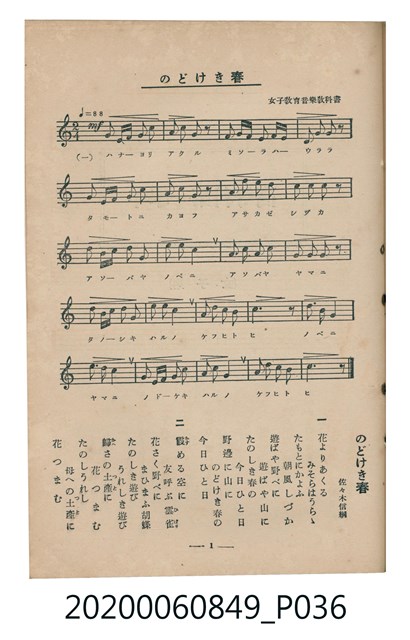 のどけき春
女子教育音樂教科書
♩=88
mf
(一) ハナーヨリ アクル ミソーラハー ウララ
タモートニ カヨフ アサカゼ シヅカ
アソーバヤ ノベニ アソバヤ ヤマニ
タノーシキ ハルノ ケフヒト ヒ ノベニ
ヤマニ ノドーケキ ハルノ ケフヒト ヒ
のどけき春
佐々木信綱
一 花よりあくる
みそらはうらゝ
たもとにかよふ
朝風しづか
遊ばや野べに
遊ばや山に
たのしき春の
今日ひと日
野邊に山に
のどけき春の
今日ひと日
二 霞める空に
友呼ぶ雲雀
花さく野べに
まひまふ胡蝶
うれしき遊び
たのしき遊び
歸さの土產に
花つまむ
たのしうれし
母への土產に
花つまむ
— 1 —
20200060849_P036